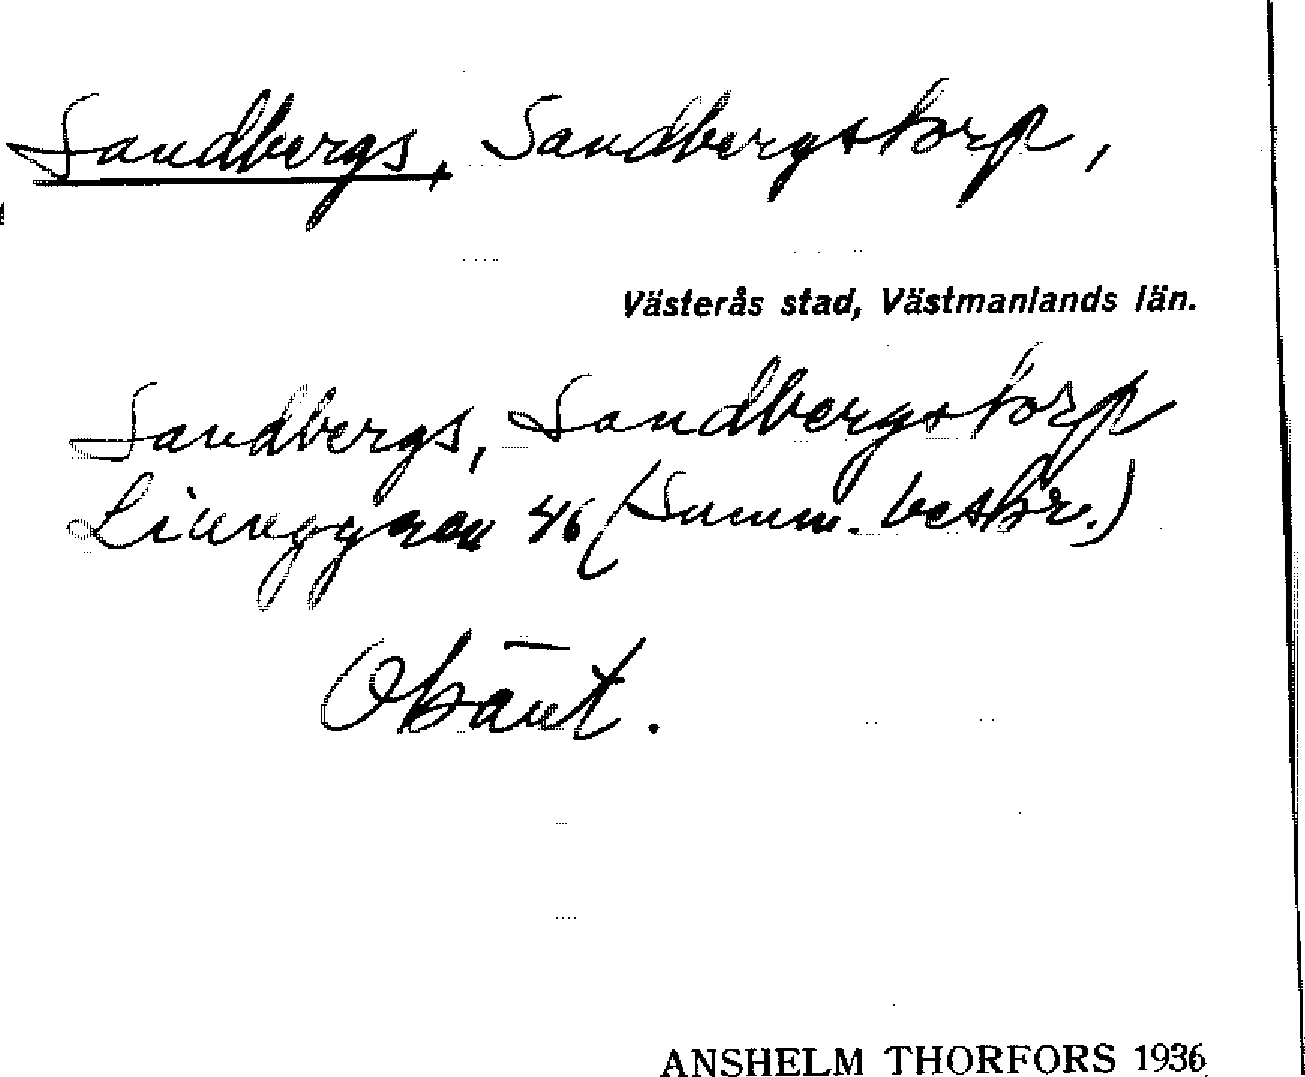 Sandbergs, Sandbergstorp,
Västerås stad, Västmanlands län.
Sandbergs, Sandbergstorp
46 (Summ. beskr.)
Okänt.
ANSHELM THORFORS 1936